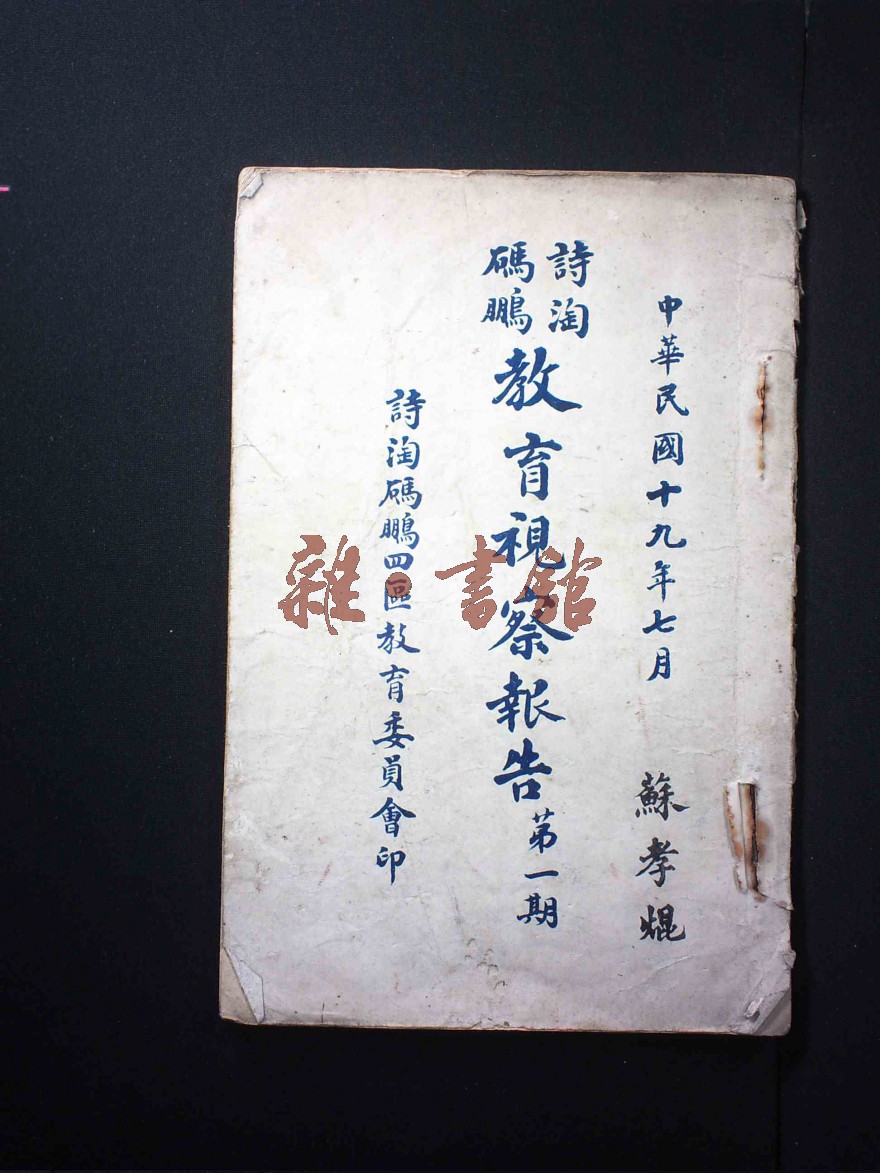 中華民國十九年七月
蘇孝焜
詩淘
碼鵬
教育視察報告第一期
詩淘碼鵬四區教育委員會印
雜·書館